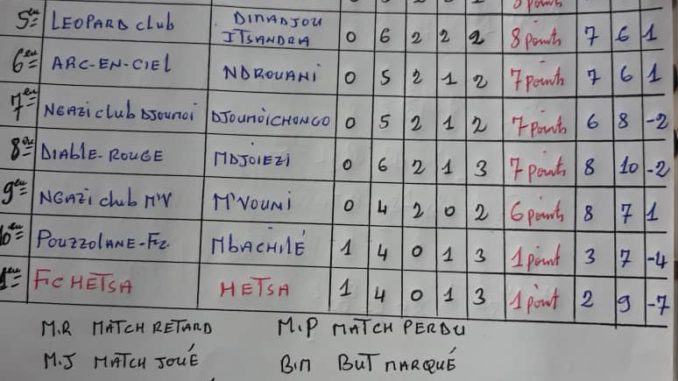 5eu LEOPARD club DIMADJOU ITSANDRA 0 6 2 2 2 8 points 7 6 1
6eu ARC-EN-CIEL NDROUANI 0 5 2 1 2 7 points 7 6 1
7eu NGAZI club DJOUMOI DJOUMOICHONGO 0 5 2 1 2 7 points 6 8 -2
8eu DIABLE-ROUGE MDJOIEZI 0 6 2 1 3 7 points 8 10 -2
9eu NGAZI club M'V M'VOUNI 0 4 2 0 2 6 points 8 7 1
10eu POUZZOLANE-FZ. MBACHILÉ 1 4 0 1 3 1 point 3 7 -4
FC HETSA HETSA 1 4 0 1 3 1 point 2 9 -7
M.R MATCH RETARD M.P MATCH PERDU
M.J MATCH JOUÉ B.M BUT MARQUÉ